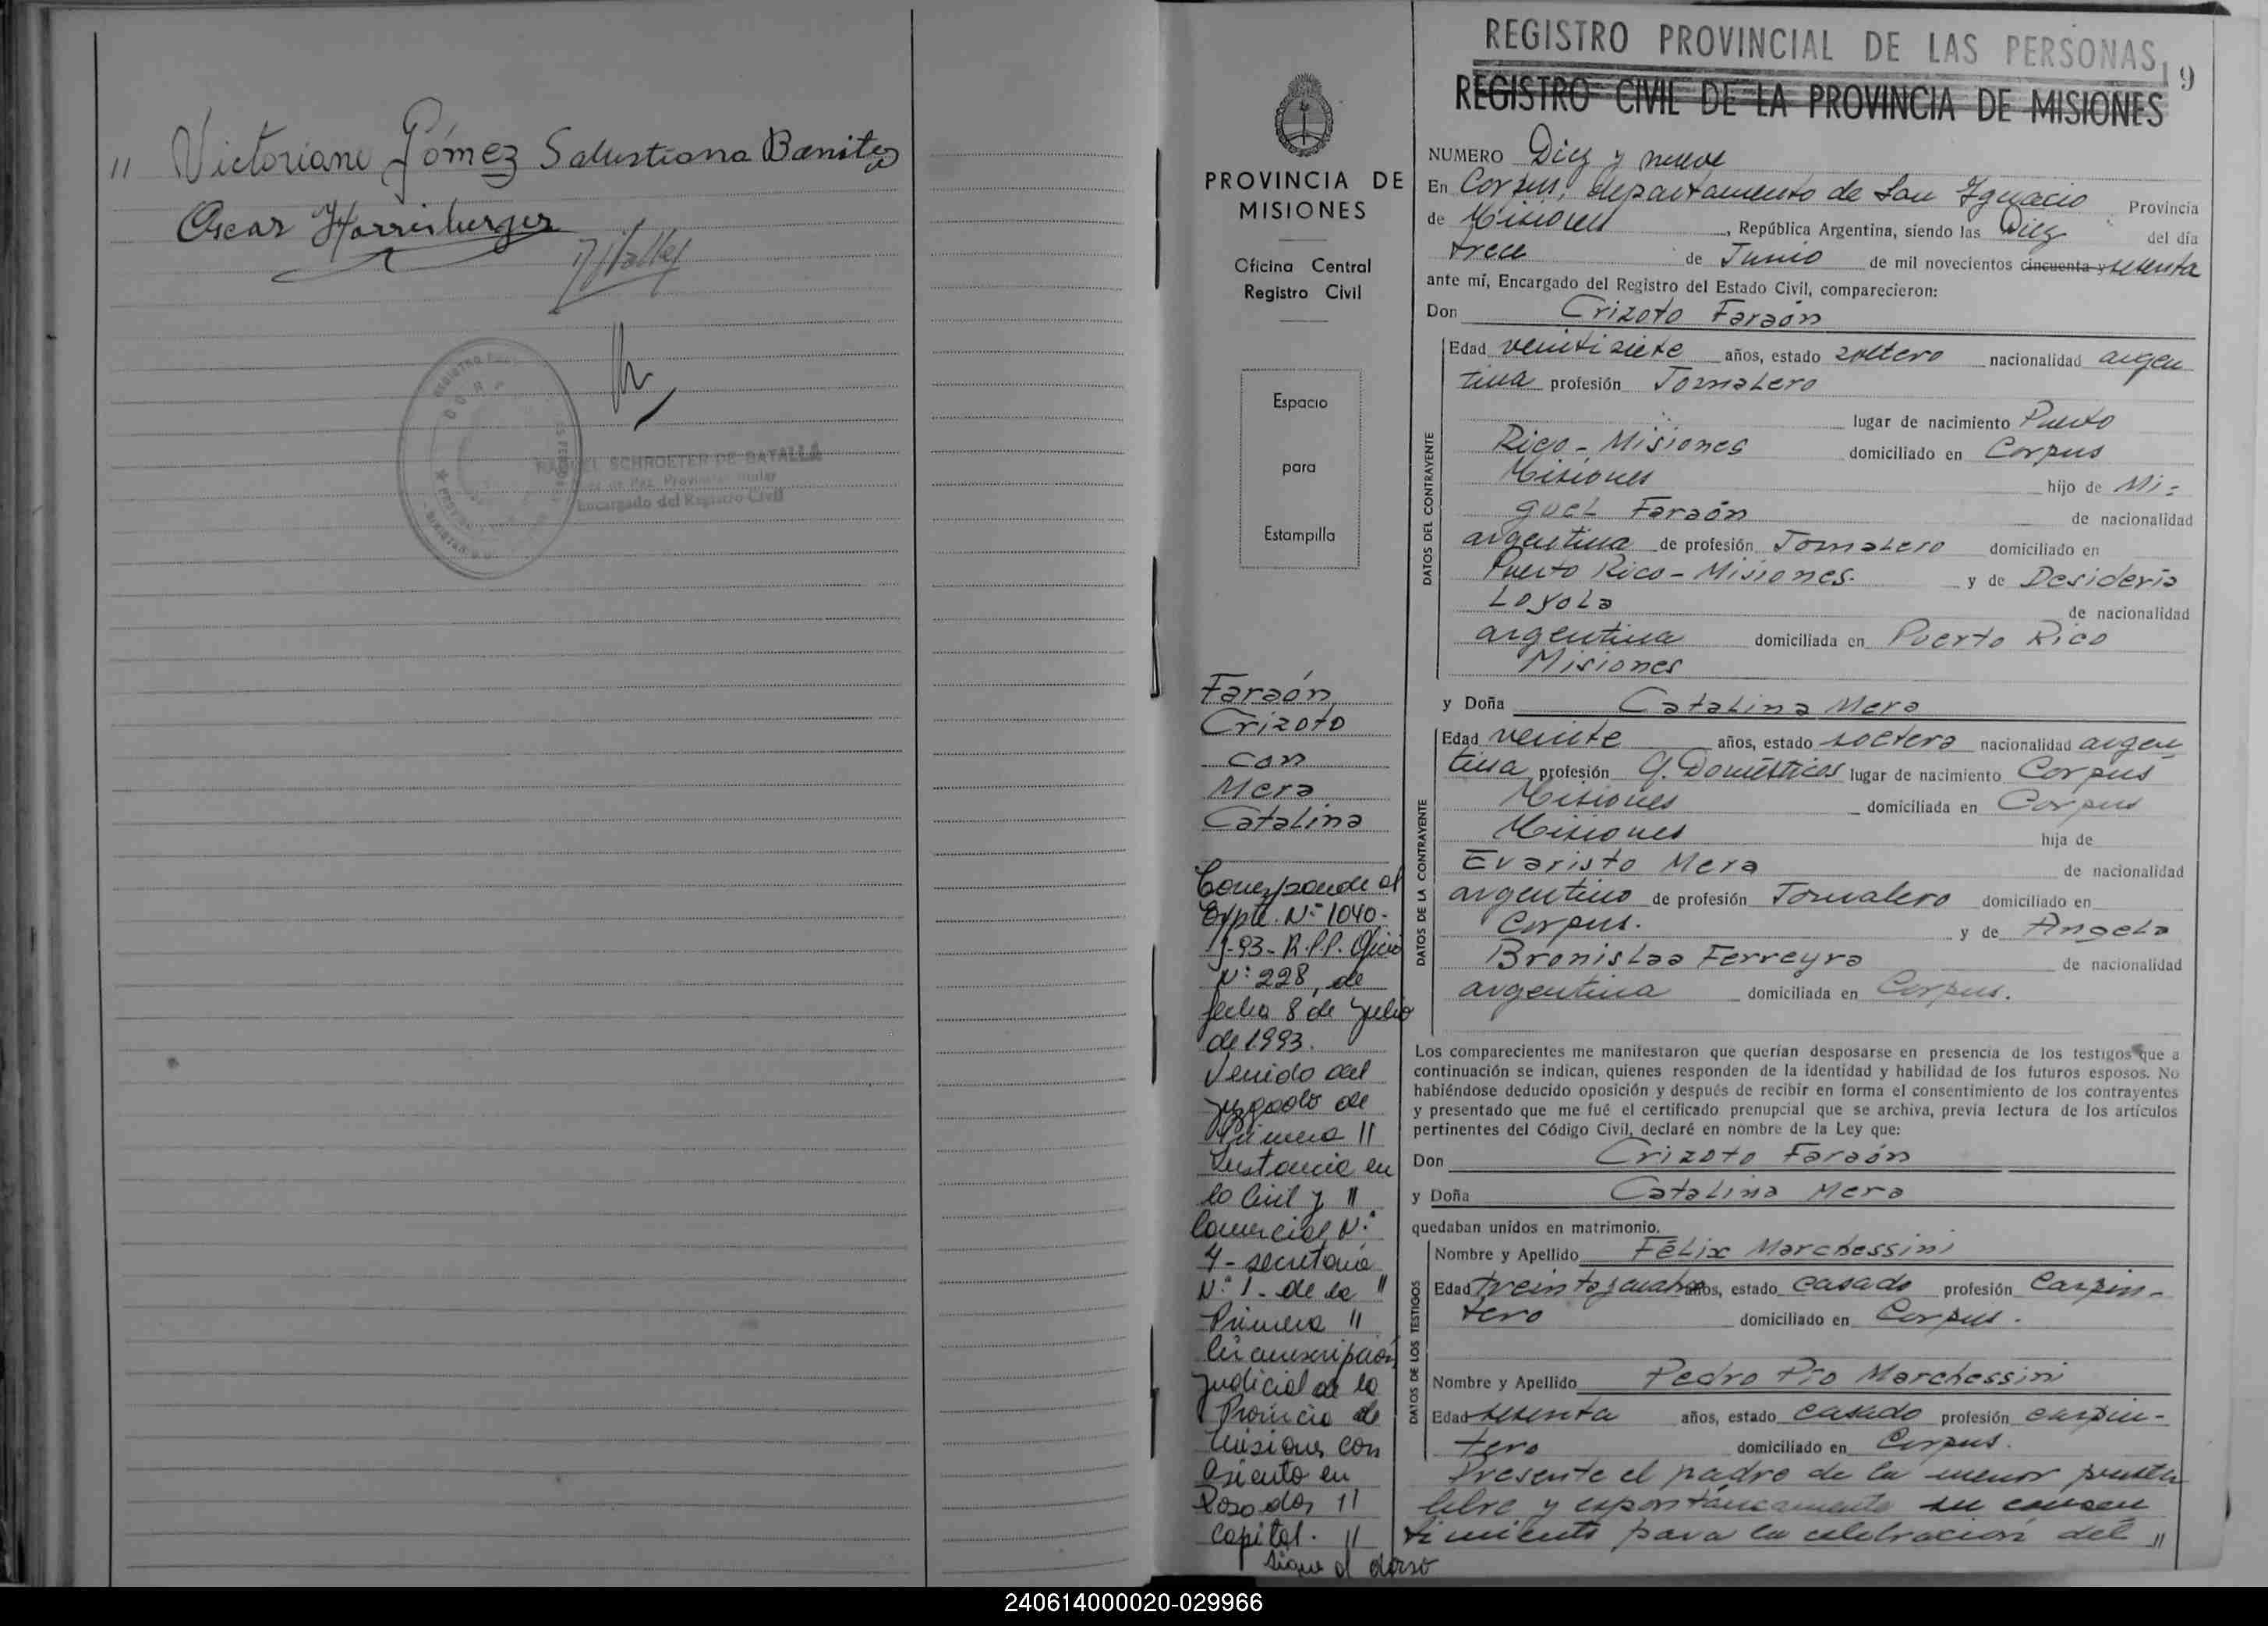 " Victoriano Gómez Salustiana Benitez
Oscar Horrisberger
SCHROETER DE BATALLA
Encargado del Registro Civil
REGISTRO PROVINCIAL DE LAS PERSONAS
19
REGISTRO CIVIL DE LA PROVINCIA DE MISIONES
PROVINCIA DE
MISIONES
Oficina Central
Registro Civil
Espacio
para
Estampilla
Faraón
Crizoto
con
Mera
Catalina
Corresponde al
Expte. Nº 1040-
J-93-R.P.P. Oficio
Nº 228, de
fecha 8 de Julio
de 1993.
Venido del
Juzgado de
Primera "
Instancia en
lo Civil y "
Comercial Nº
4- secretaria
Nº 1- de la "
Primera "
Circunscripción
Judicial de la
Provincia de
Misiones con
Asiento en
Posadas "
Capital. "
Sigue al dorso
NUMERO Diez y nueve
En Corpus, departamento de San Ignacio Provincia
de Misiones, República Argentina, siendo las Diez del día
trece de Junio de mil novecientos cincuenta y setenta
ante mí, Encargado del Registro del Estado Civil, comparecieron:
Don Crizoto Faraón
DATOS DEL CONTRAYENTE
Edad veintisiete años, estado soltero nacionalidad argen
tina profesión Jornalero
lugar de nacimiento Puerto
Rico - Misiones domiciliado en Corpus
Misiones hijo de Mi=
guel Faraón de nacionalidad
argentina de profesión Jornalero domiciliado en
Puerto Rico - Misiones. y de Desideria
Loyola de nacionalidad
argentina domiciliada en Puerto Rico
Misiones
y Doña Catalina Mera
DATOS DE LA CONTRAYENTE
Edad veinte años, estado soltera nacionalidad argen
tina profesión Q. Domésticos lugar de nacimiento Corpus
Misiones domiciliada en Corpus
Misiones hija de
Evaristo Mera de nacionalidad
argentino de profesión Jornalero domiciliado en
Corpus. y de Angela
Bronislaa Ferreyra de nacionalidad
argentina domiciliada en Corpus.
Los comparecientes me manifestaron que querían desposarse en presencia de los testigos que a
continuación se indican, quienes responden de la identidad y habilidad de los futuros esposos. No
habiéndose deducido oposición y después de recibir en forma el consentimiento de los contrayentes
y presentado que me fué el certificado prenupcial que se archiva, previa lectura de los artículos
pertinentes del Código Civil, declaré en nombre de la Ley que:
Don Crizoto Faraón
y Doña Catalina Mera
quedaban unidos en matrimonio.
DATOS DE LOS TESTIGOS
Nombre y Apellido Félix Marchessini
Edad treinta y cuatro años, estado casado profesión Carpin-
tero domiciliado en Corpus.
Nombre y Apellido Pedro Pío Marchessini
Edad setenta años, estado casado profesión carpin-
tero domiciliado en Corpus.
Presente el padre de la menor presta
libre y espontáneamente su consen
timiento para la celebración del "
240614000020-029966